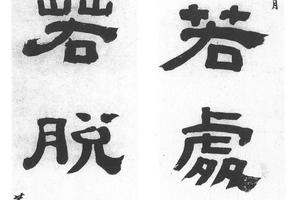 若處
若脱